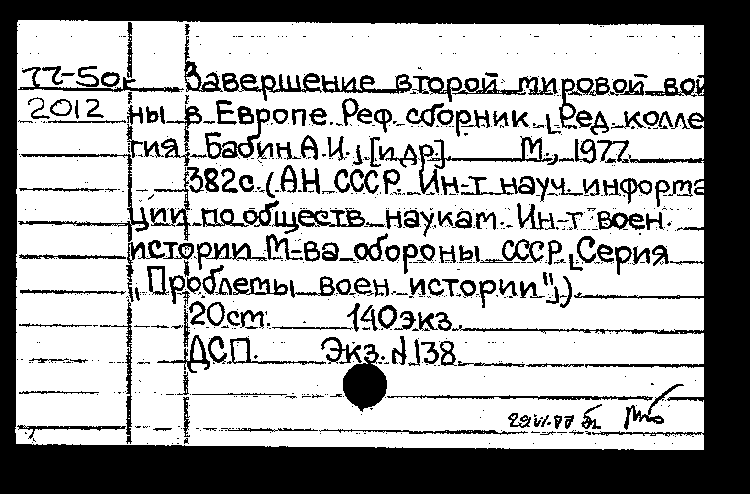 77-50г Завершение второй мировой вой
2012 ны в Европе. Реф. сборник. [Ред. колле
гия: Бабин А.И.] [и др]. М., 1977.
382с. (АН СССР. Ин-т науч. информа
ции по обществ. наукам. Ин-т воен.
истории М-ва обороны СССР. [Серия
"Проблемы воен. истории"]).
20см. 140 экз.
ДСП. Экз. №138.